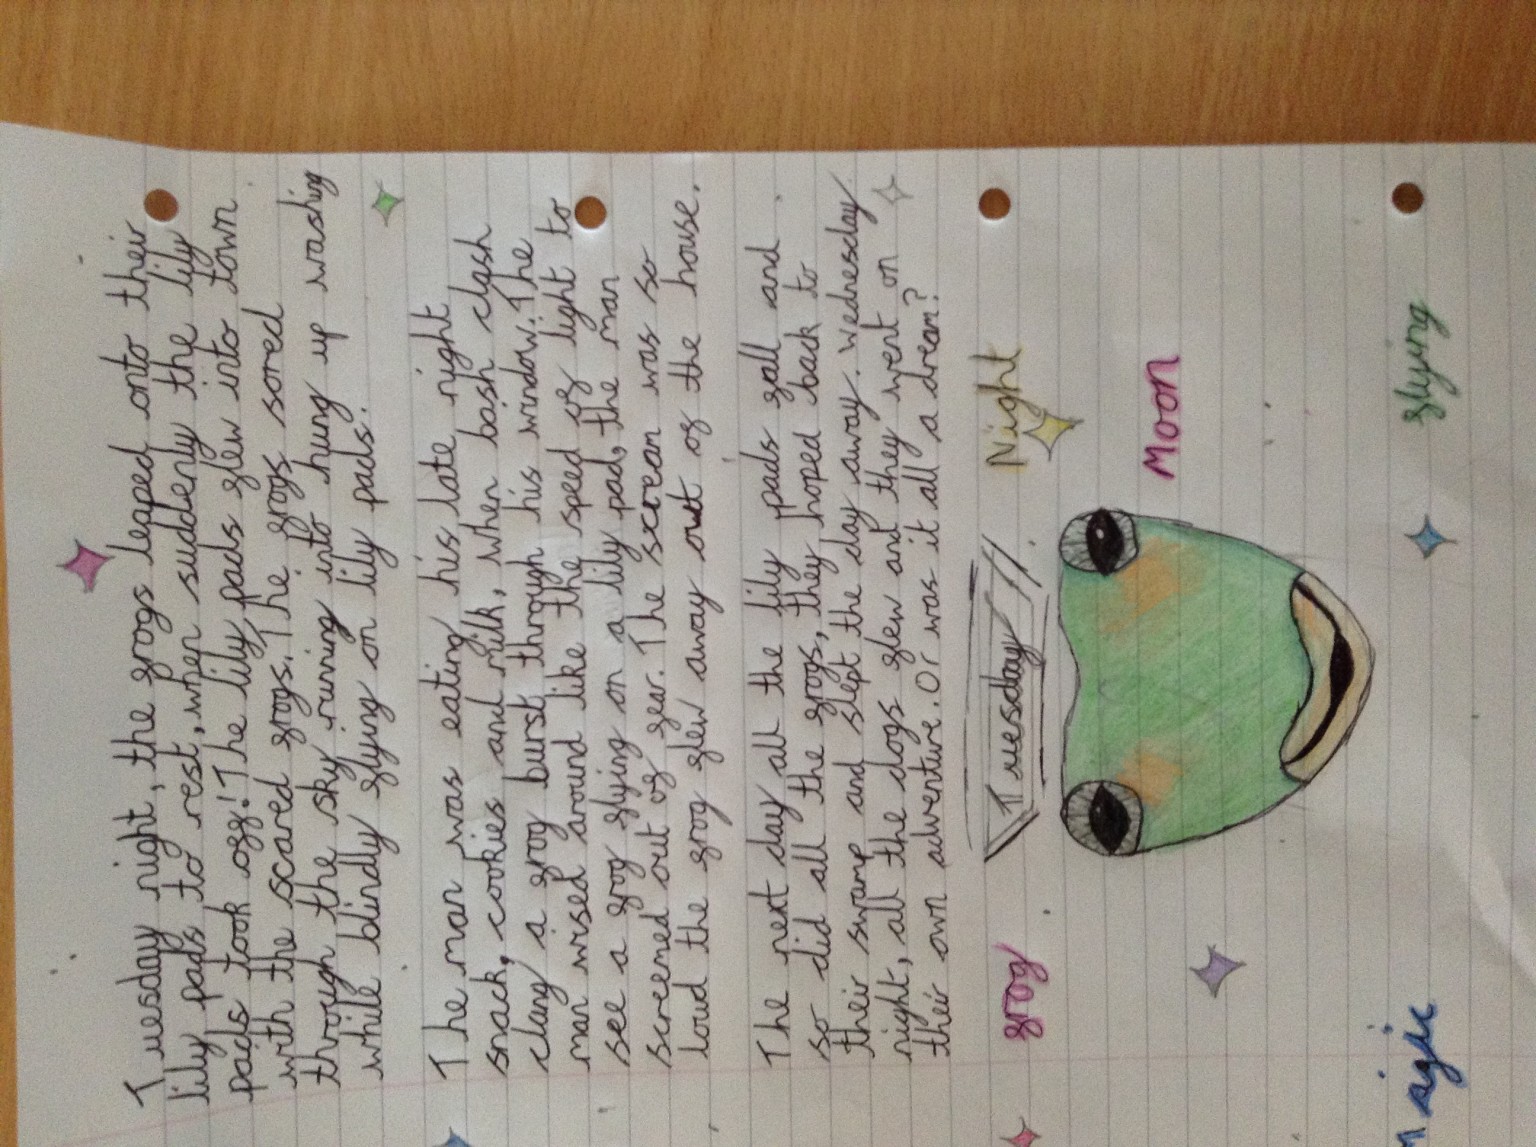 Tuesday night, the frogs leaped onto their
lily pads to rest, when suddenly the lily
pads took off! The lily pads flew into town
with the scared frogs. The frogs sored
through the sky running into hung up washing
while blindly flying on lily pads.
The man was eating his late night
snack, cookies and milk, when bash clash
clang a frog burst through his window. The
man wised around like the speed of light to
see a frog flying on a lily pad, the man
screemed out of fear. The screan was so
loud the frog flew away out of the house.
The next day all the lily pads fall and
so did all the frogs, they hoped back to
their swamp and slept the day away. Wednesday
night, all the dogs flew and they went on
their own adventure. Or was it all a dream?
frog
Tuesday
Night
Moon
magic
flying